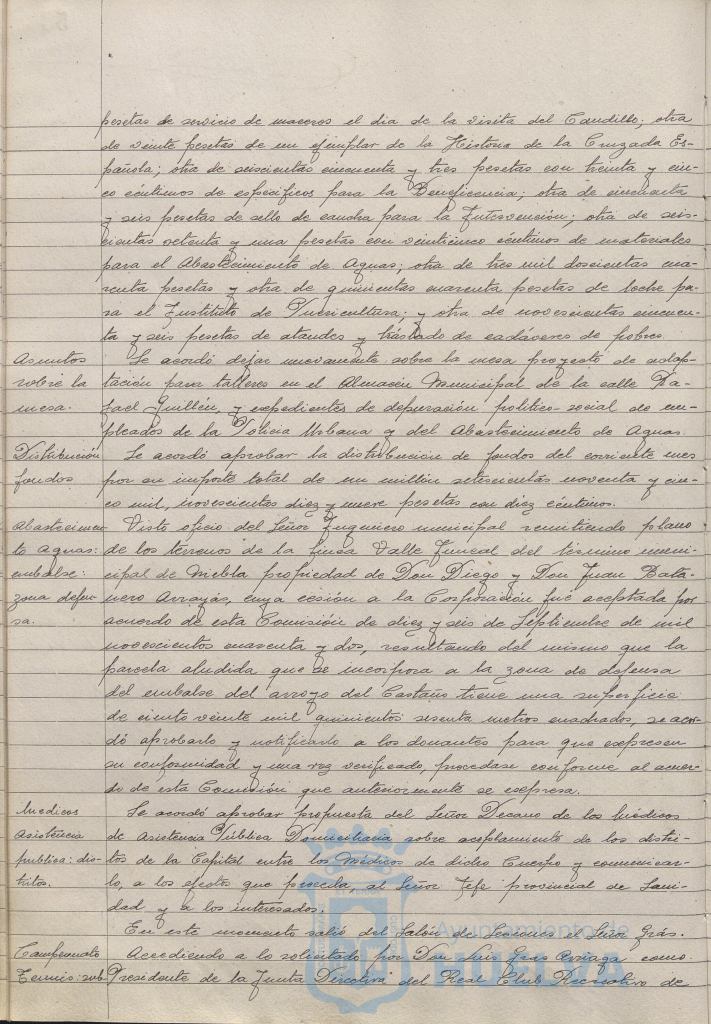 pesetas de servicio de maceros el dia de la visita del Caudillo; otra
de veinte pesetas de un ejemplar de la Historia de la Cruzada Es-
pañola; otra de seiscientas cincuenta y tres pesetas con treinta y cin-
co céntimos de específicos para la Beneficencia; otra de cincuenta
y seis pesetas de sello de caucho para la Intervención; otra de seis-
cientas setenta y una pesetas con veinticinco céntimos de materiales
para el Abastecimiento de Aguas; otra de tres mil doscientas cua-
renta pesetas y otra de quinientas cuarenta pesetas de leche pa-
ra el Instituto de Puericultura; y otra de novecientas cincuen-
ta y seis pesetas de ataudes y traslado de cadáveres de pobres.
Asuntos sobre la mesa.
Se acordó dejar nuevamente sobre la mesa proyecto de adap-
tación para talleres en el Almacén Municipal de la calle Ra-
fael Guillén, y expedientes de depuración político-social de em-
pleados de la Policia Urbana y del Abastecimiento de Aguas.
Distribución fondos.
Se acordó aprobar la distribución de fondos del corriente mes
por un importe total de un millón setecientas noventa y cin-
co mil, novecientas diez y nueve pesetas con diez céntimos.
Abastecimien-
to Aguas:
embalse:
zona defen-
sa.
Visto oficio del Señor Ingeniero municipal remitiendo plano
de los terrenos de la finca Valle Juncal del término muni-
cipal de Niebla propiedad de Don Diego y Don Juan Bata-
nero Arrayás, cuya cesión a la Corporación fué aceptada por
acuerdo de esta Comisión de diez y seis de Septiembre de mil
novecientos cuarenta y dos, resultando del mismo que la
parcela aludida que se incorpora a la zona de defensa
del embalse del arroyo del Castaño tiene una superficie
de ciento veinte mil quinientos sesenta metros cuadrados, se acor-
dó aprobarlo y notificarlo a los donantes para que expresen
su conformidad y una vez verificado, procedase conforme al acuer-
do de esta Comisión que anteriormente se expresa.
Medicos
Asistencia
publica: dis-
tritos.
Se acordó aprobar propuesta del Señor Decano de los Médicos
de Asistencia Pública Domiciliaria sobre acoplamiento de los distri-
tos de la Capital entre los Médicos de dicho Cuerpo y comunicar-
lo, a los efectos que proceda, al Señor Jefe provincial de Sani-
dad y a los interesados.
En este momento salió del Salón de Sesiones el Señor Grás.
Campeonato
Tennis: sub
Accediendo a lo solicitado por Don Luis Gras Arriaga como
Presidente de la Junta Directiva del Real Club Recreativo de
Ayuntamiento de
HUELVA